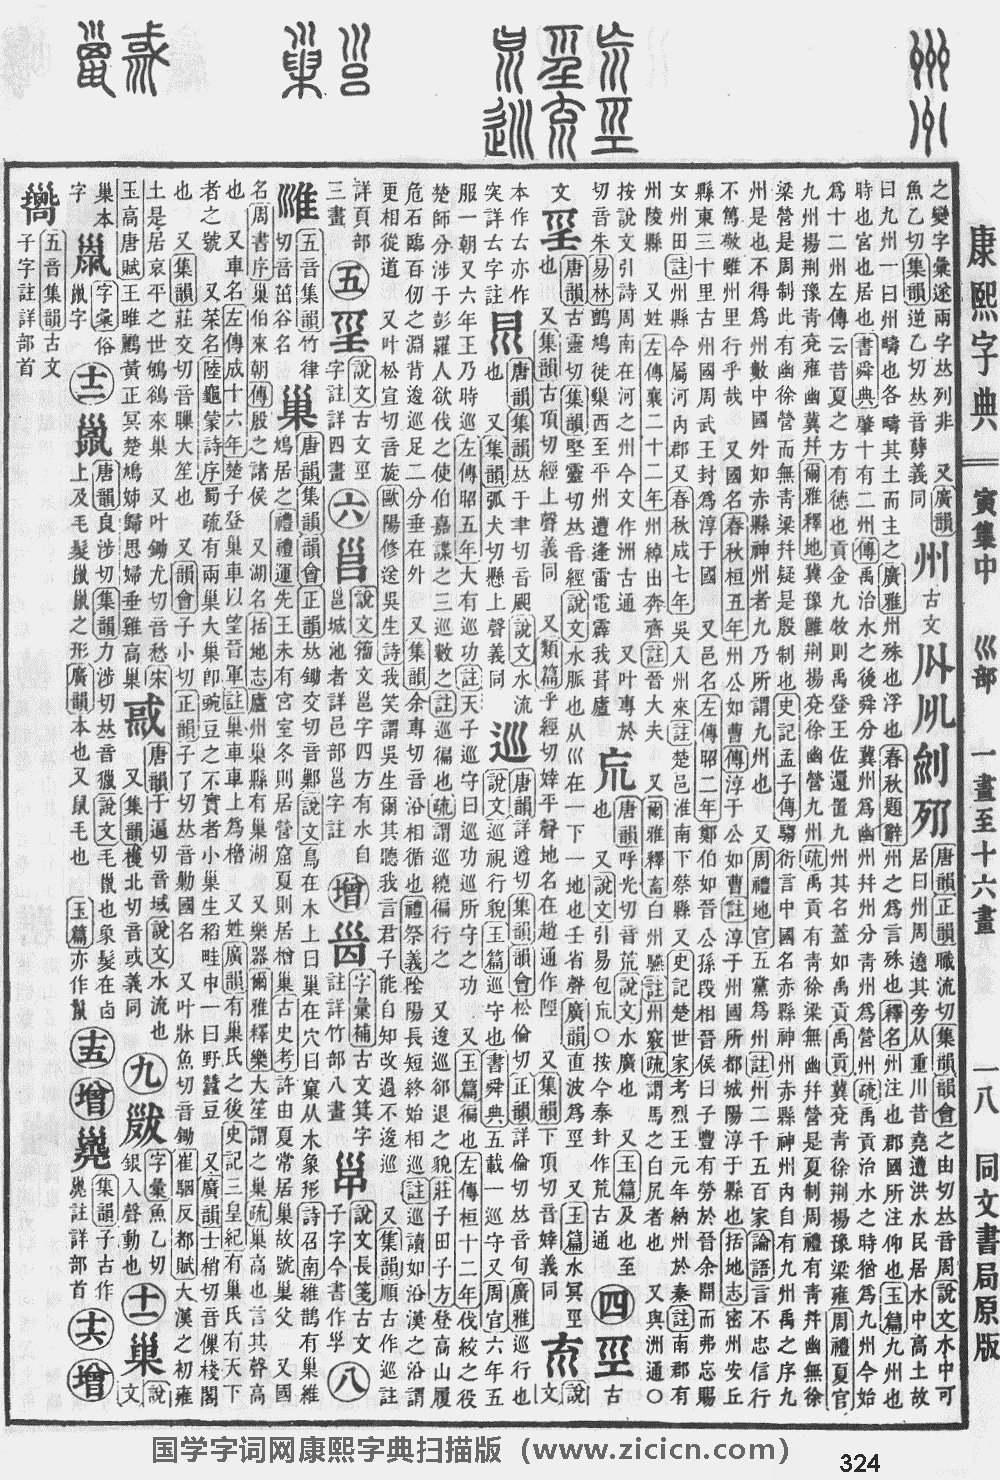 康熙字典
寅集中
巛部
一畫至十六畫
一八
同文書局原版
之變字彙遂兩字𠀤列非 又廣韻
魚乙切集韻逆乙切𠀤音㔎義同
州古文
唐韻正韻職流切集韻韻會之由切𠀤音周說文水中可
居曰州周遶其旁从重川昔堯遭洪水民居水中高土故
曰九州一曰州疇也各疇其土而主之廣雅州殊也浮也春秋題辭州之爲言殊也釋名州注也郡國所注仰也玉篇九州也
時也宮也居也書舜典肇十有二州傳禹治水之後舜分冀州爲幽州幷州分青州爲營州疏禹貢治水之時猶爲九州今始
爲十二州左傳云昔夏之方有德也貢金九牧則禹登王佐還置九州其名蓋如禹貢禹貢冀兗青徐荆揚豫梁雍周禮夏官
九州揚荆豫青兗雍幽冀幷爾雅釋地冀豫雝荆揚兗徐幽營九州疏禹貢有青徐梁無幽幷營是夏制周禮有青幷幽無徐
梁營是周制此有幽徐營而無青梁幷疑是殷制也史記孟子傳騶衍言中國名赤縣神州赤縣神州內自有九州禹之序九
州是也不得爲州數中國外如赤縣神州者九乃所謂九州也 又周禮地官五黨爲州註州二千五百家論語言不忠信行
不篤敬雖州里行乎哉 又國名春秋桓五年州公如曹傳淳于公如曹註淳于州國所都城陽淳于縣也括地志密州安丘
縣東三十里古州國周武王封爲淳于國 又邑名左傳昭二年鄭伯如晉公孫段相晉侯曰子豐有勞於晉余聞而弗忘賜
女州田註州縣今屬河內郡又春秋成七年吳入州來註楚邑淮南下蔡縣又史記楚世家考烈王元年納州於秦註南郡有
州陵縣 又姓左傳襄二十二年州綽出奔齊註晉大夫 又爾雅釋畜白州驠註州竅疏謂馬之白尻者也 又與洲通○
按說文引詩周南在河之州今文作洲古通 又叶專於
切音朱易林鸇鳩徙巢西至平州遭逢雷電霹我葺廬
巟唐韻呼光切音荒說文水廣也 又玉篇及也至
也 又說文引易包巟○按今泰卦作荒古通
四
巠古
文
坙唐韻古靈切集韻堅靈切𠀤音經說文水脈也从巛在一下一地也壬省聲廣韻直波爲巠 又玉篇水冥巠
也 又集韻古頂切經上聲義同 又類篇乎經切婞平聲地名在趙通作陘 又集韻下頂切音婞義同
㐬說文
本作𠫓亦作
突詳𠫓字註
唐韻集韻𠀤于聿切音䬍說文水流
也 又集韻弧犬切懸上聲義同
巡唐韻詳遵切集韻韻會松倫切正韻詳倫切𠀤音旬廣雅巡行也
說文巡視行貌玉篇巡守也書舜典五載一巡守又周官六年五
服一朝又六年王乃時巡左傳昭五年大有巡功註天子巡守曰巡功巡所守之功 又玉篇徧也左傳桓十二年伐絞之役
楚師分涉于彭羅人欲伐之使伯嘉諜之三巡數之註巡徧也疏謂巡繞徧行之 又逡巡郤退之貌莊子田子方登高山履
危石臨百仞之淵背逡巡足二分垂在外 又集韻余專切音沿相循也禮祭義隂陽長短終始相巡註巡讀如沿漢之沿謂
更相從道 又叶松宣切音旋歐陽修送吳生詩我笑謂吳生爾其聽我言君子能自知改過不逡巡 又集韻順古作巡註
詳頁部
三畫
五
巠字註詳四畫
說文古文巠
六
邕說文籀文邕字四方有水自
邕城池者詳邑部邕字註
增
甾字彙補古文箕字
註詳竹部八畫
𡿪說文長箋古文
子字今書作㜽
八
五音集韻竹律
切音茁谷名
巢唐韻集韻韻會正韻𠀤鋤交切音鄛說文鳥在木上曰巢在穴曰窠从木象形詩召南維鵲有巢維
鳩居之禮禮運先王未有宮室冬則居營窟夏則居橧巢古史考許由夏常居巢故號巢父 又國
名周書序巢伯來朝傳殷之諸侯 又湖名括地志廬州巢縣有巢湖 又樂器爾雅釋樂大笙謂之巢疏巢高也言其聲高
也 又車名左傳成十六年楚子登巢車以望晉軍註巢車車上爲櫓 又姓廣韻有巢氏之後史記三皇紀有巢氏有天下
者之號 又菜名陸龜蒙詩序蜀疏有兩巢大巢卽豌豆之不實者小巢生稻畦中一曰野蠶豆 又廣韻士稍切音㑿棧閣
也 又集韻莊交切音䫸大笙也 又韻會子小切正韻子了切𠀤音勦國名 又叶牀魚切音鋤崔駰反都賦大漢之初雍
土是居哀平之世鴝鵒來巢 又叶鋤尤切音愁宋
玉高唐賦王雎鸝黃正冥楚鳩姊歸思婦垂雞高巢
惐唐韻于逼切音域說文水流也
 又集韻檴北切音或義同
九
字彙魚乙切
銀入聲動也
十一
巢說文
巢本
字
字彙俗
巤字
十二
巤唐韻良涉切集韻力涉切𠀤音獵說文毛巤也象髮在囟
上及毛髮巤巤之形廣韻本也又鼠毛也 玉篇亦作鬣
十五
增
集韻子古作
𡿹註詳部首
十六
增
五音集韻古文
子字註詳部首
国学字词网康熙字典扫描版（www.zicicn.com）
324